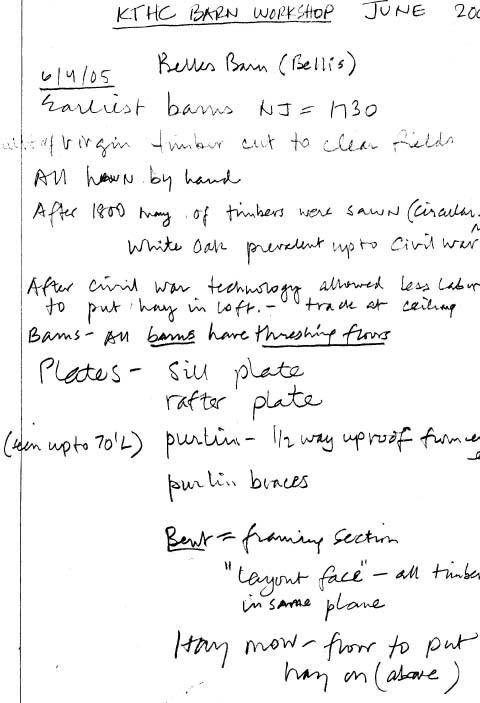 KTHC BARN WORKSHOP JUNE 200
6/4/05 Belles Barn (Bellis)
Earliest barns NJ = 1730
of virgin timber cut to clear fields
All hewn by hand
After 1800 many of timbers were sawn (circular
White Oak prevalent up to Civil War
After civil war technology allowed less labor
to put hay in loft. - track at ceiling
Barns - All barns have threshing floors
Plates - Sill plate
rafter plate
(seen up to 70'L) purlin - 1/2 way up roof from
purlin braces
Bent = framing section
"Layout face" - all timbe
in same plane
Hay mow - floor to put
hay on (above)